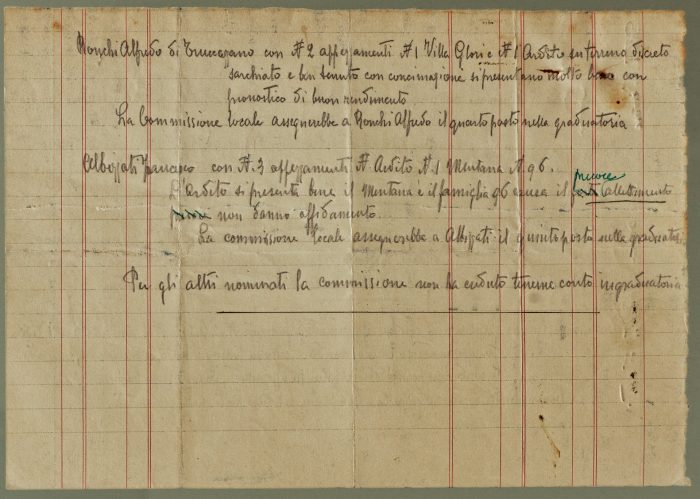 Ronchi Alfredo di Truccazzano con N 2 appezzamenti N 1 Villa Glori e N 1 Ardito su terreno discreto
sarchiato e ben tenuto con concimazione si presentano molto bene con
pronostico di buon rendimento
La Commissione locale assegnerebbe a Ronchi Alfredo il quarto posto nella graduatoria
Albizzati Francesco con N. 3 appezzamenti N Ardito N. 1 Mentana N. 96.
L'ardito si presenta bene il Mentana e il famiglia 96 causa il precoce allettimento
non danno affidamento.
La commissione locale assegnerebbe a Albizzati il quinto posto nella graduator
Per gli altri nominati la commissione non ha creduto tenerne conto in graduatoria